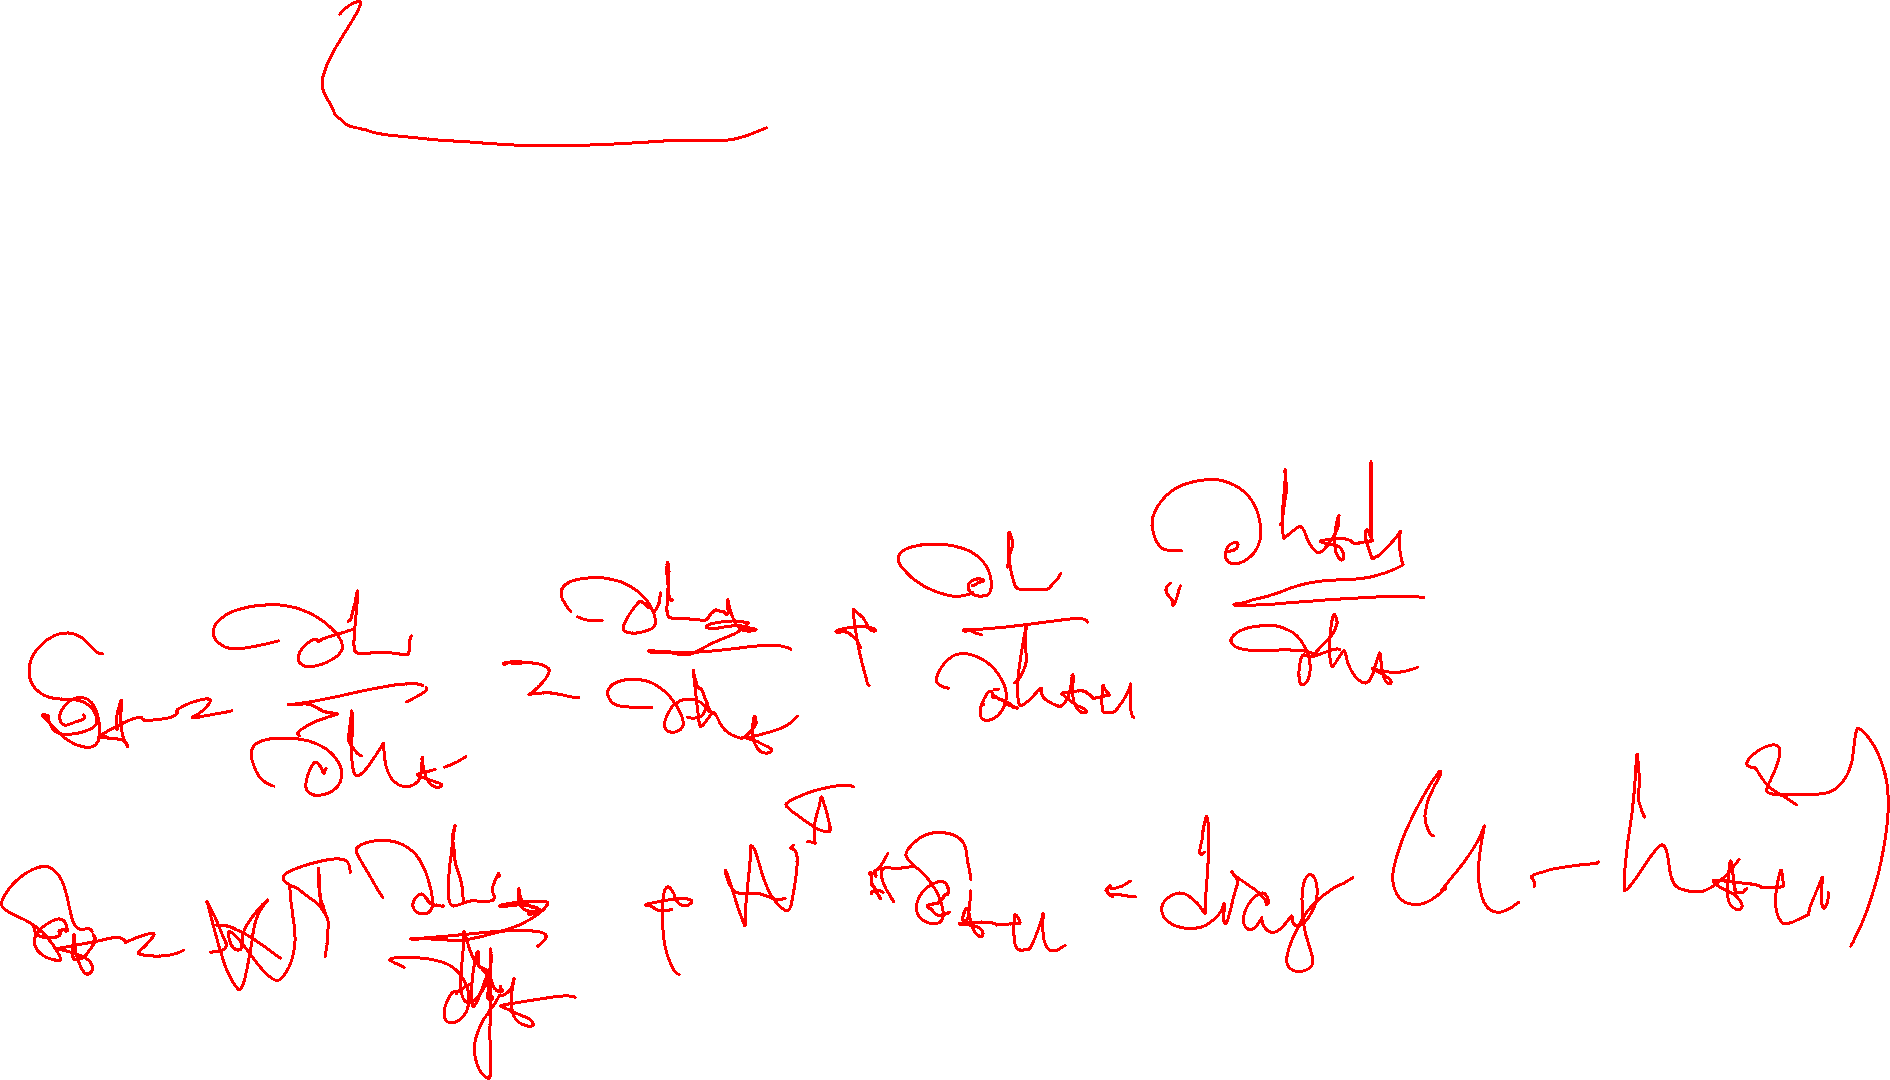 δₜ = ∂L/∂hₜ = ∂Lₜ/∂hₜ + ∂L/∂hₜ₊₁ · ∂hₜ₊₁/∂hₜ
δₜ = Wᵀ ∂Lₜ/∂yₜ + Wᵀ · δₜ₊₁ · diag (1 - hₜ₊₁²)